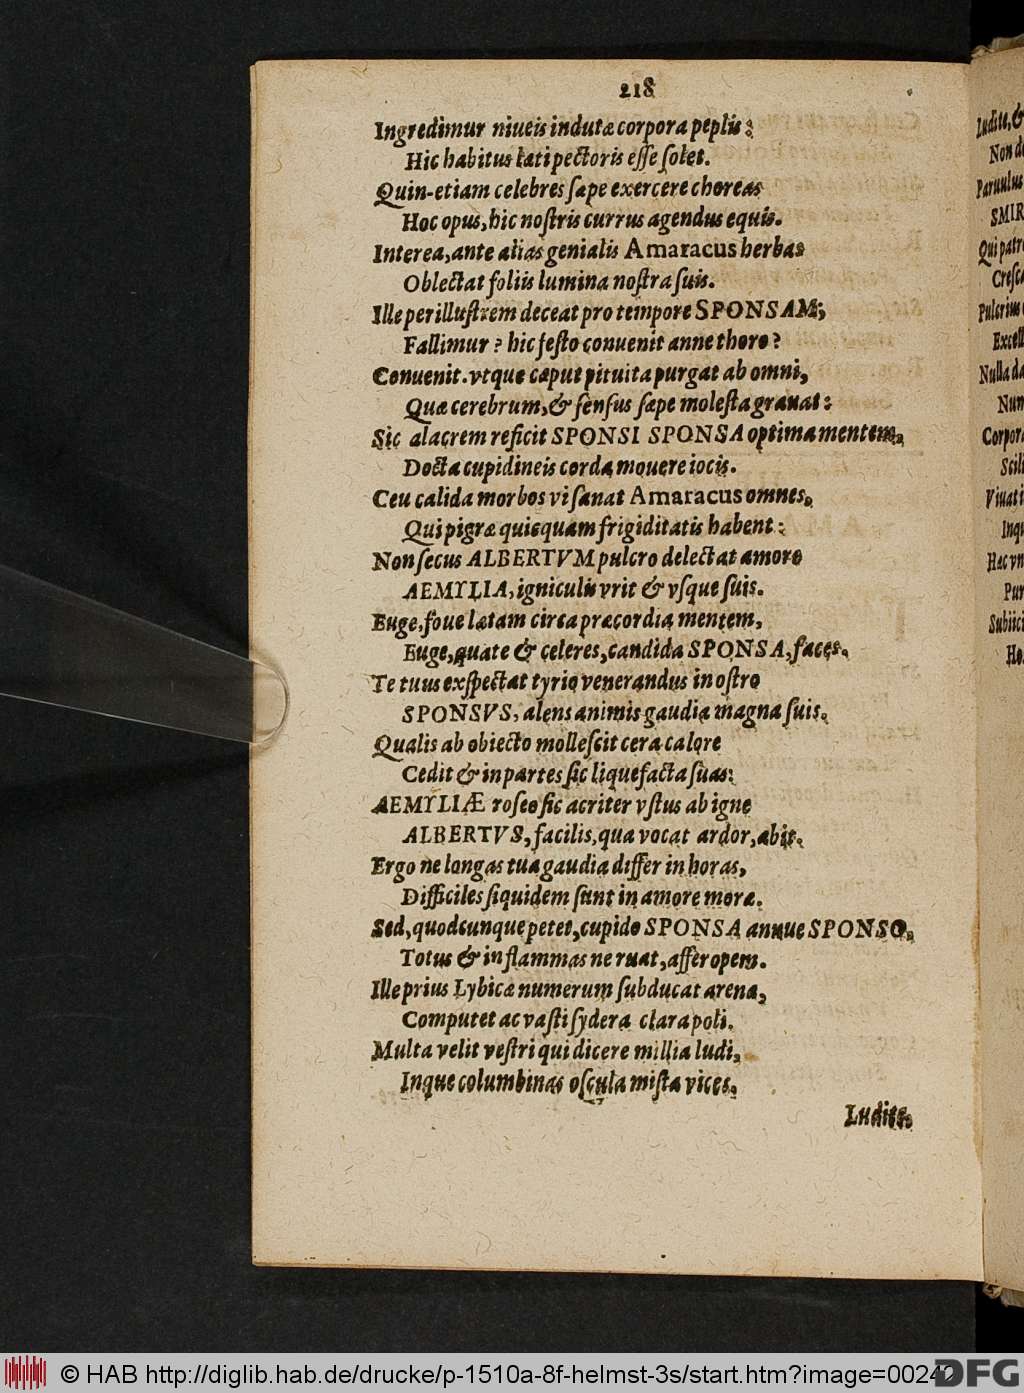 218
Ingredimur niueis indutæ corpora peplis:
Hic habitus lati pectoris esse solet.
Quin-etiam celebres sæpe exercere choreas
Hoc opus, hic nostris currus agendus equis.
Interea, ante alias genialis Amaracus herbas
Oblectat foliis lumina nostra suis.
Ille per illustrem deceat pro tempore SPONSAM;
Fallimur? hic festo conuenit anne thoro?
Conuenit. vtque caput pituita purgat ab omni,
Quæ cerebrum, & sensus sæpe molesta grauat:
Sic alacrem reficit SPONSI SPONSA optima mentem,
Docta cupidineis corda mouere iocis.
Ceu calida morbos vi sanat Amaracus omnes,
Qui pigræ quicquam frigiditatis habent:
Non secus ALBERTVM pulcro delectat amore
AEMYLIA, igniculis vrit & vsque suis.
Euge, foue lætam circa præcordia mentem,
Euge, quate & celeres, candida SPONSA, faces.
Te tuus exspectat tyrio venerandus in ostro
SPONSVS, alens animis gaudia magna suis.
Qualis ab obiecto mollescit cera calore
Cedit & in partes sic liquefacta suas:
AEMYLIÆ roseo sic acriter vstus ab igne
ALBERTVS, facilis, qua vocat ardor, abit.
Ergo ne longas tua gaudia differ in horas,
Difficiles siquidem sunt in amore moræ.
Sed, quodcunque petet, cupido SPONSA annue SPONSO,
Totus & in flammas ne ruat, affer opem.
Ille prius Lybicæ numerum subducat arenæ,
Computet ac vasti sydera clara poli.
Multa velit vestri qui dicere millia ludi,
Inque columbinas oscula mista vices.
Ludite,
© HAB http://diglib.hab.de/drucke/p-1510a-8f-helmst-3s/start.htm?image=00242
DFG